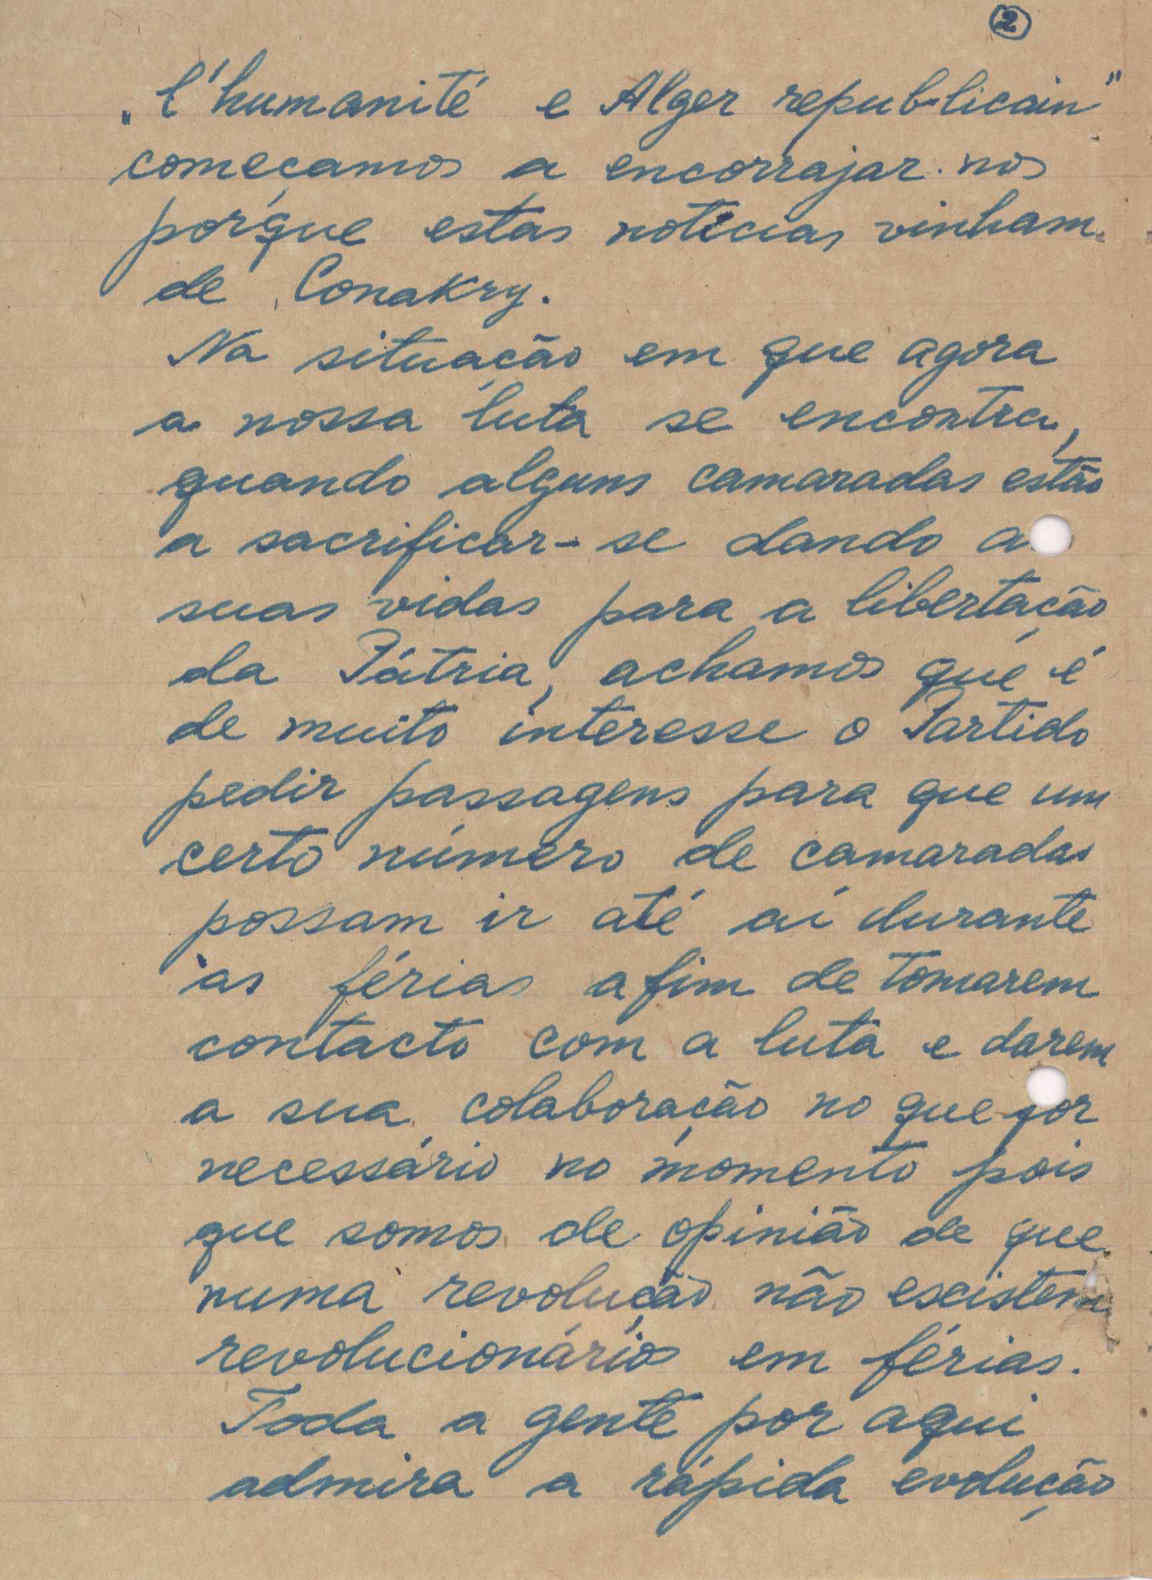 2
"l'humanité e Alger republicain"
começamos a encorrajar-nos
porque estas noticias vinham
de Conakry.
Na situação em que agora
a nossa luta se encontra,
quando alguns camaradas estão
a sacrificar-se dando a
suas vidas para a libertação
da Pátria, achamos que é
de muito interesse o Partido
pedir passagens para que um
certo número de camaradas
possam ir até aí durante
as férias afim de tomarem
contacto com a luta e darem
a sua colaboração no que for
necessário no momento pois
que somos de opinião de que
numa revolução não existem
revolucionários em férias.
Toda a gente por aqui
admira a rápida evolução